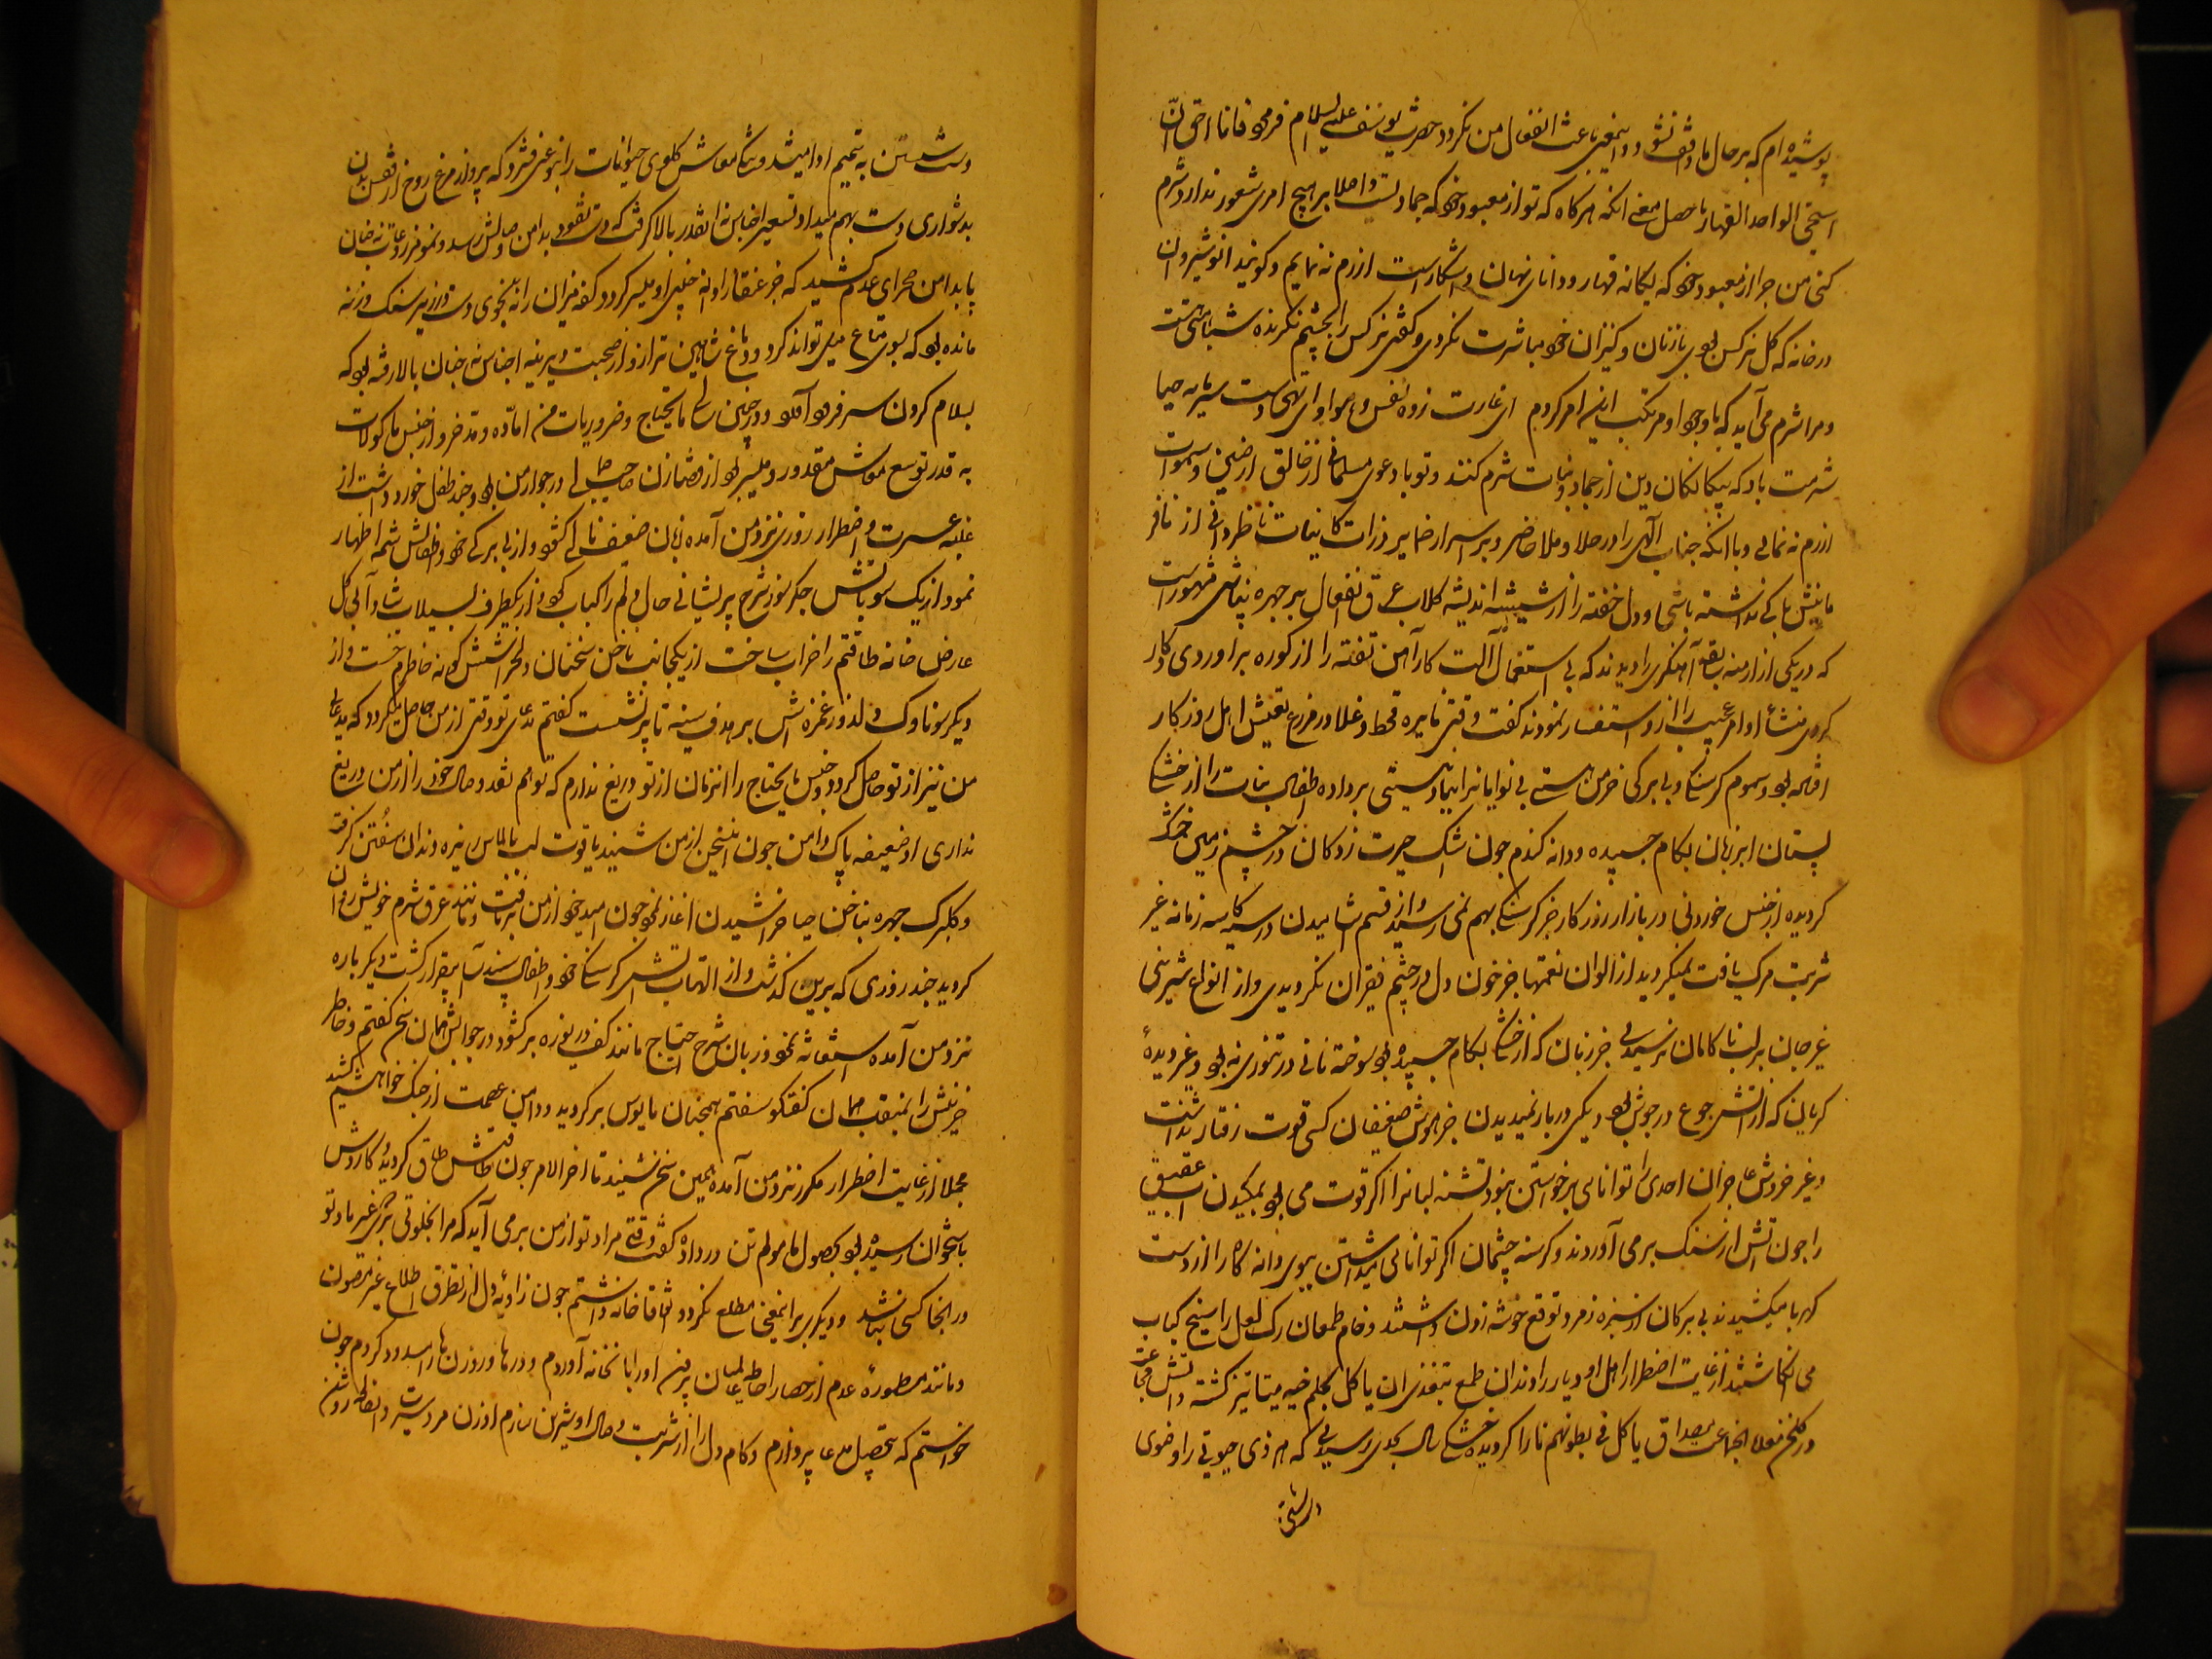 پوشیده ام که بر حال ما واقف نشود و اینمعنی باعث انفعال من نکردد حضرت یوسف علیه السلام فرمود فانا احق ان
استحی الواحد القهار حاصل معنی انکه هرکاه که تو از معبود خود که جمادیست و اصلا بر هیچ امری شعور ندارد شرم
کنی من چرا از معبود خود که یکانه قهار و دانای نهان و آشکار است ازرم نه نمایم و کویند انوشیروان
در خانه که کل نرکس بودی با زنان و کنیزان خود مباشرت نکردی و کفتی نرکس را بچشم نکرنده شباهتی هست
و مرا شرم می آید که با وجود او مرتکب این امر کردم ای غارت زده نفس و هوا و ای تهی دست سرمایه حیا
شرمت باد که بیکانکان دین از جماد و نبات شرم کنند و تو با دعوی مسلمانی از خالق ارضین و سموات
ازرم نه نمائی و با انکه جناب الهی را در خلا و ملا حاضر و بر اسرار ضمایر ذرات کاینات ناظر دانی از
باکی نداشته باشی و دل خفته را از شیشه اندیشه کلاب عرق انفعال بر چهره نپاشی مشهور است
که در یکی از ازمنه سابقه آهنکری را دیدند که بی استعمال آلت کار آهن تفته را از کوره بر اوردی و کار
کردی منشأ او امر عجیب را از و استفسار نمودند کفت وقتی نایره قحط و غلا در مزرع تعیش اهل روزکار
افتاده بود و سموم کرسنکی و بی برکی خرمن هستی بی نوایان را بباد نیستی بر داده اطفال نبات را از خشکی
پستان ابر زبان بکام چسپیده و دانه کندم چون اشک حیرت زدکان در چشم زمین خشک
کردیده از جنس خوردنی در بازار روزکار جز کرسنکی بهم نمی رسید و از قسم اشامیدن در کاسه زمانه غیر
شربت مرک یافت نمیکردید از الوان نعمتها جز خون دل در چشم فقیران نکردیدی و از انواع شیرینی
غیر جان بر لب ناکامان نرسیدی جز زبان که از خشکی بکام چسپیده بود سوخته نانی در تنوری نه بود و غیر دیدهٔ
کریان که از آتش جوع در جوش بود دیکی در بار نمیدیدن جز هوش ضعیفان کسی قوت رفتار نداشت
و غیر خروش عاجزان احدی را توانائی بر خواستن نبود تشنه لبان را اکر قوت می بود بمکیدن آب عقیق
را چون آتش از سنک بر می آوردند و کرسنه چشمان اکر توانائی میداشتن بیوی دانه کاه را از دست
کهربا میکشیدند بی برکان از سبزه زمرد توقع خوشه زدن داشتند و خام طمعان رک لعل را سیخ کباب
می انکاشتند از غایت اضطرار اهل او دیار را دندان طمع بتغذی ان یاکل لحم اخیه میتا تیز کشته و آتش مجاعت
در کلخن معده انجماعت بمصداق یاکل فی بطونهم نارا کردیده خشکی سال بحدی رسید که هر ذی حیوتی را وضوی
دست شستن
دست شستن به تیمم ادا میشد و تنکی معاش کلوی حیوانات را بنوعی فشرد که پرواز مرغ روح از قفس بدن
بدشواری دست بهم میداد و تسعیر اجناس انقدر بالا کرفت که دست نقود بدامن وصالش رسد و نمو مزروعات نه چنان
پا بدامن صحرای عدم کشید که جز عنقا را دانه خلی او میسر کردد کفه میزان را نه بنحوی دست در زیر سنک وزنه
مانده بود که بسوی متاع میل تواند کرد و دماغ شاهین ترازو از صحبت دیرینه اجناس نه چنان بالا رفته بود که
بسلام کردن سر فرود آمد و در چنین حالی مایحتاج و ضروریات من اماده و مدخر و از جنس ماکولات
به قدر توسع معاش مقدور و میسر بود از قضا زن صاحب جمالی در جوار من بود و چند طفل خورد داشت از
غلبه عسرت و اضطرار روزی نزد من آمده زبان ضعیف نالی کشود و از بی برکی خود و اطفالش شمه اظهار
نمود از یک سو باتش جکر سوز شرح پریشانی حال دلم را کباب کرد و از یکطرف بسیلاب شادابی کل
عارض خانه طاقتم را خراب ساخت از یکجانب ناخن سخنان دلخراشش کونه خاطرم خست و از
دیکر سو ناوک دلدوز غمزه اش بر هدف سینه تا پر نشست کفتم مدعای تو وقتی از من حاصل میکردد که مدعای
من نیز از تو حاصل کردد و جنس مایحتاج را انزمان از تو دریغ ندارم که تو هم نقد وصال خود را از من دریغ
نداری او ضعیفه پاک دامن چون اینسخن از من شنید یاقوت لب بالماس ریزه دندان سفتن کرفت
و کلبرک چهره بناخن حیا خراشیدن اغاز نمود چون امید خود از من بر نیافت و مانند عرق شرم خویش روان
کردید چند روزی که برین کذشت و از التهاب آتش کرسنکی خود و اطفال سپند آسا بیقرار کشت دیکر باره
نزد من آمده استغاثه نمود و زبان بشرح احتیاج مانند کف دریوزه برکشود در جوابش همان سخن کفتم و خاطر
حزینش را بمثقب همان کفتکو سفتم همچنان مایوس برکردید و دامن عصمت از چنک خواهشم کشید
مجملا از غایت اضطرار مکرر نزد من آمده همین سخن شنید تا اخر الامر چون طاقتش طاق کردید و کاردش
باستخوان رسیده بود بحصول مامولم تن در داده کفت وقتی مراد تو از من بر می آید که مرا بخلوتی بری که غیر ما و تو
در انجا کسی نباشد و دیکری بر اینمعنی مطلع نکردد اتفاقا خانه داشتم چون زاویهٔ دل از تطرق اطلاع غیر مصون
و مانند مطمورهٔ عدم از حصار احاطه عالمیان بیرون او را بانخانه آوردم و درها و روزنها را مسدود کردم چون
خواستم که بتحصیل مدعا پردازم و کام دل را از شربت وصال او شیرین سازم او زن مرد سیرت و انفعاله روشن